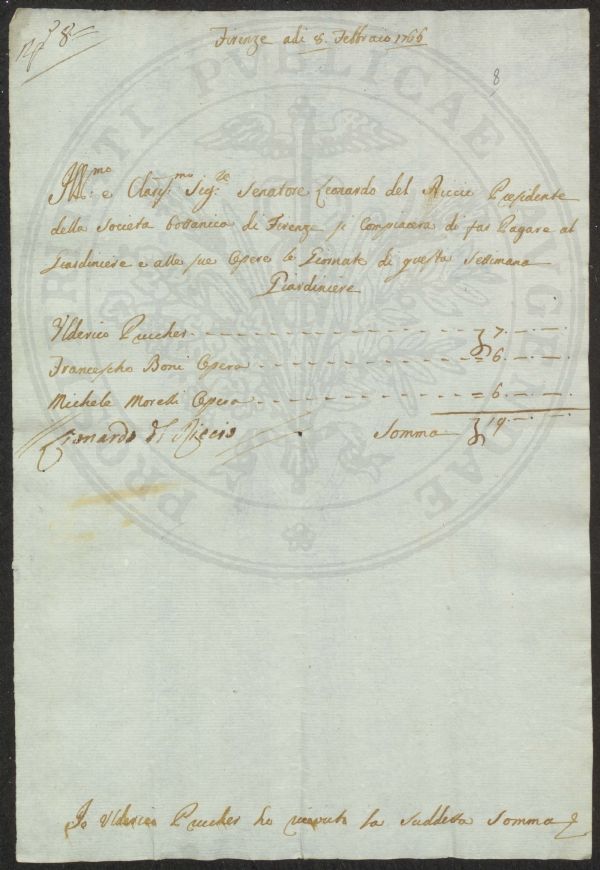 N.º 8
Firenze adi 8. Febbraio 1766
8
Ill:mo e Clariss:mo Sig:re Senatore Leonardo del Riccio Presidente
della Societa Bottanica di Firenze si Compiacera di far Pagare al
Giardiniere e alle sue Opere le Giornate di questa Settimana
Giardiniere
Ulderico Pruckher 7. — . —
Francescho Boni Opera = 6. — . —
Michele Morelli Opera = 6. — . —
Lionardo del Riccio Somma 19. — . —
Io Ulderico Pruckher ho ricevuto la suddetta Somma
PROSPERITATI PUBLICAE AUGENDAE